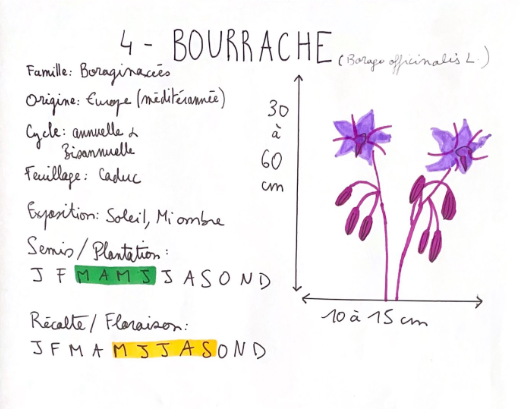 4 - BOURRACHE (Borago officinalis L.)
Famille: Boraginacées
Origine: Europe (méditérannée)
Cycle: annuelle &
Bisannuelle
Feuillage: Caduc
30
à
60
cm
Exposition: Soleil, Mi ombre
Semis / Plantation:
J F M A M J J A S O N D
10 à 15 cm
Récolte / Floraison:
J F M A M J J A S O N D